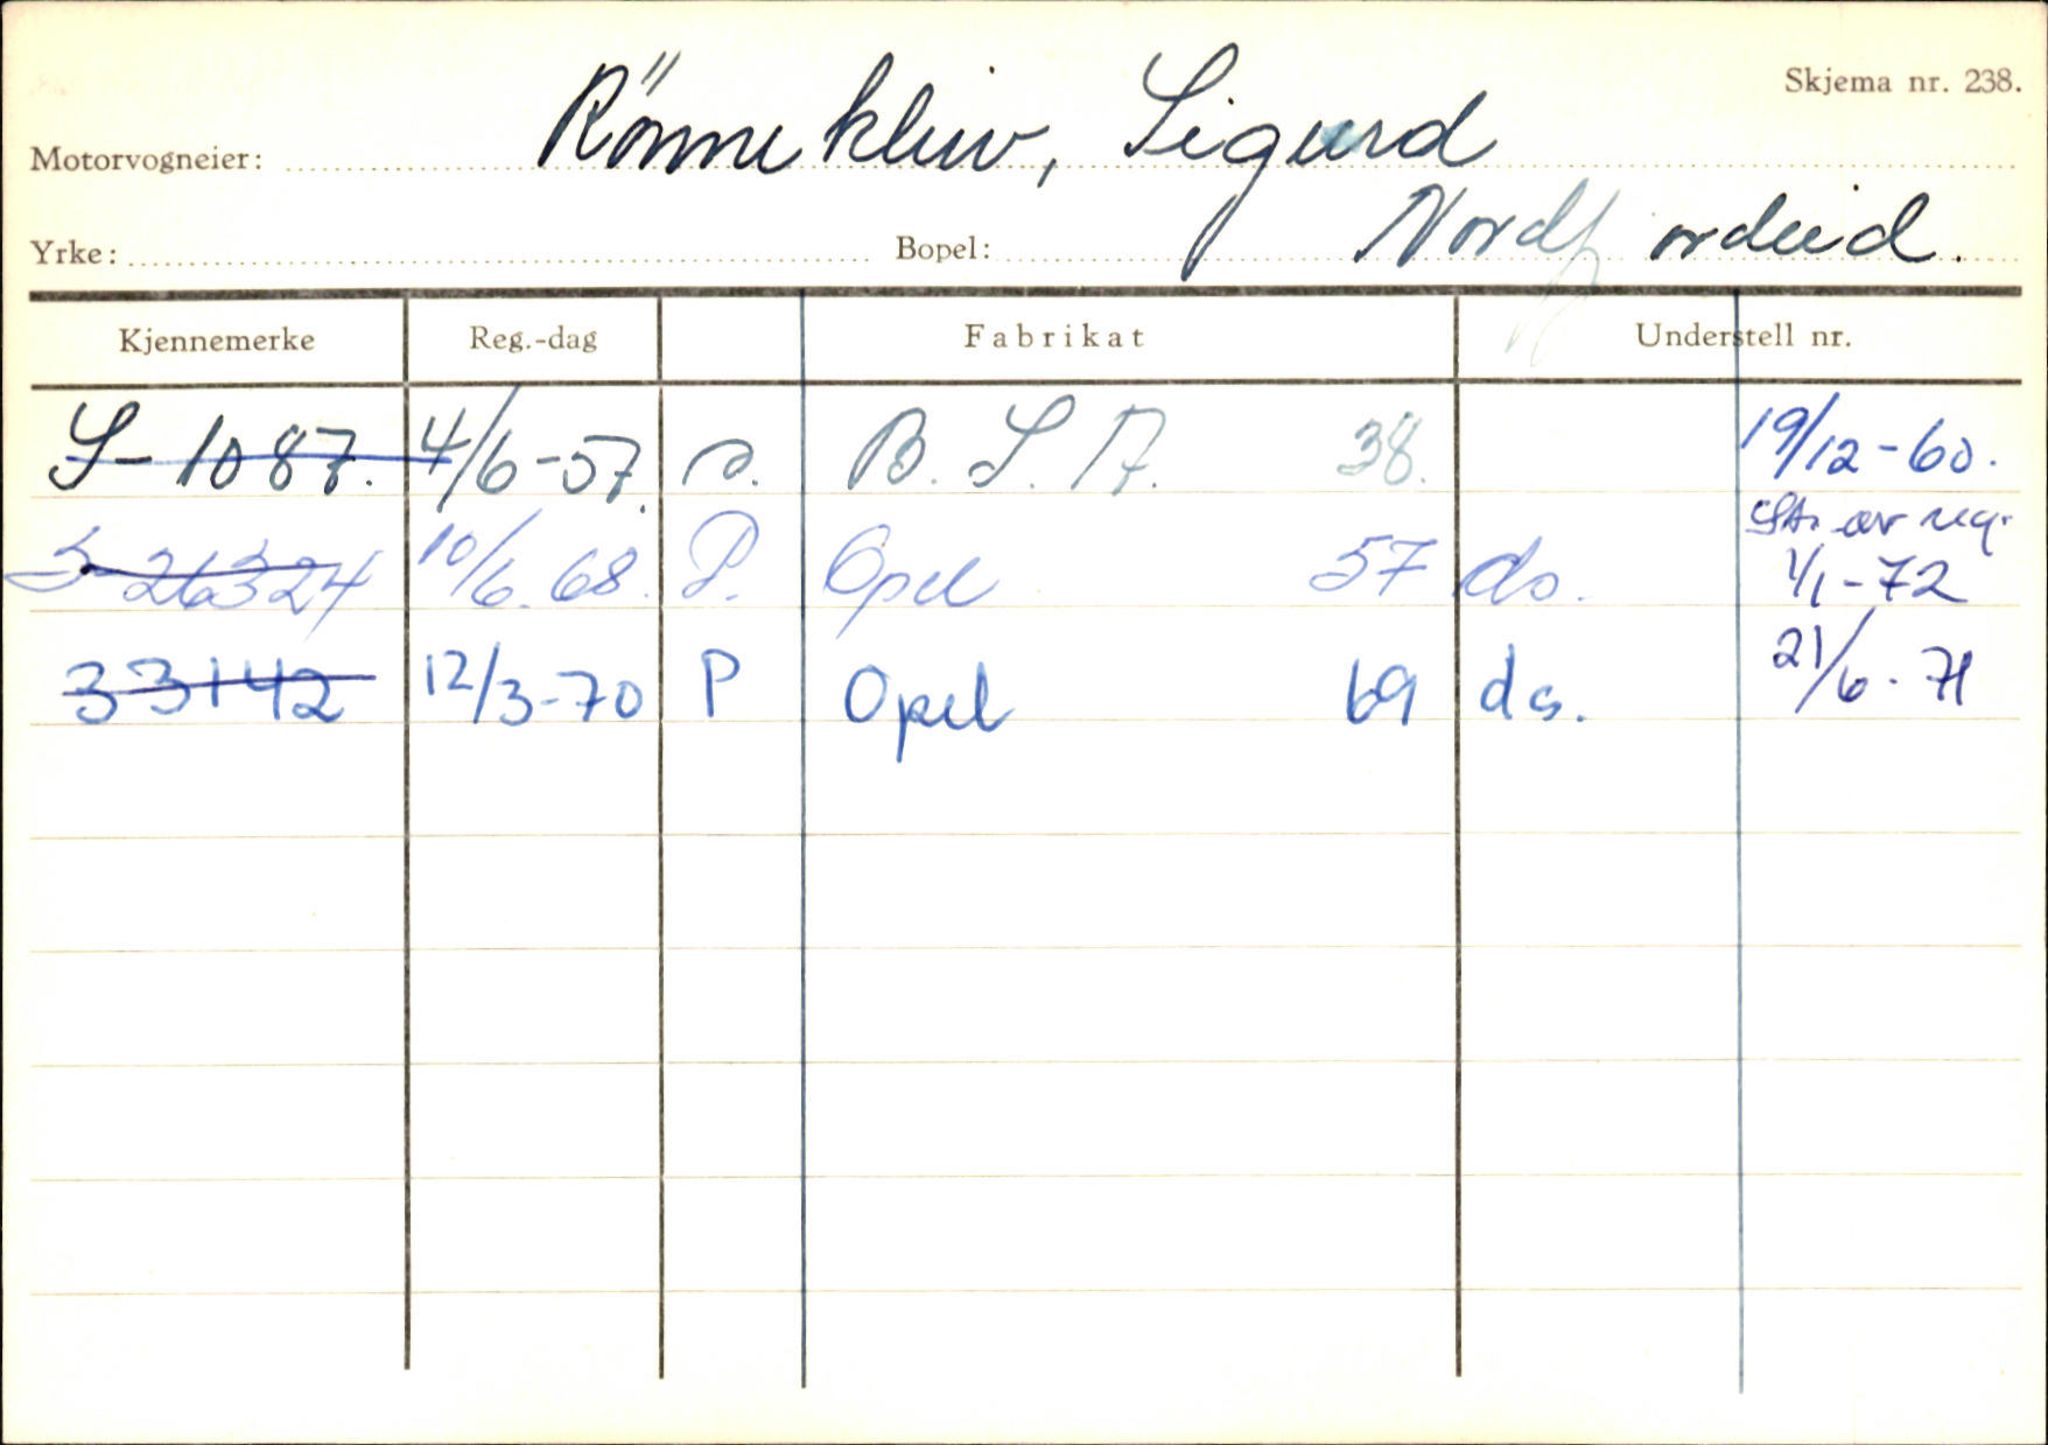 Skjema nr. 238.
Motorvogneier: Rönnekleiv, Sigurd
Yrke: Bopel: Nordfjordeid.
Kjennemerke Reg.-dag Fabrikat Understell nr.
S-1087. 4/6-57. B.S.A. 38. 19/12-60.
S-26324 10/6.68. P. Opel 57 ds. av reg. 1/1-72
33142 12/3-70 P Opel 69 ds. 21/6-71